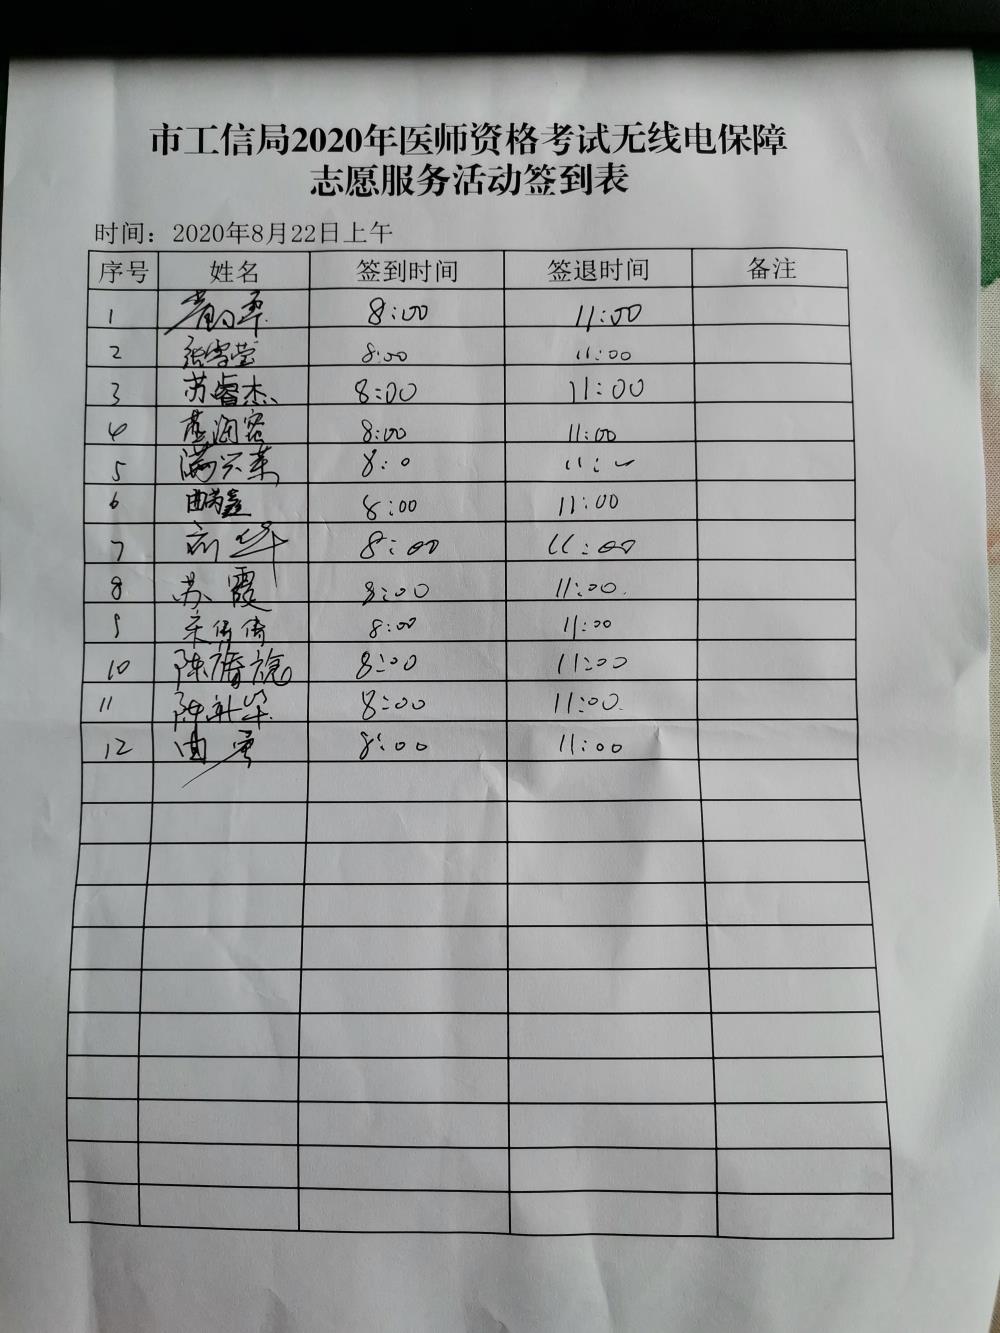 市工信局2020年医师资格考试无线电保障
志愿服务活动签到表
时间：2020年8月22日上午
序号 姓名 签到时间 签退时间 备注
1 8:00 11:00
2 8:00 11:00
3 苏睿杰 8:00 11:00
4 8:00 11:00
5 满兴莱 8:0
6 8:00 11:00
7 刘华 8:00 11:00
8 苏霞 8:00 11:00
9 宋倩倩 8:00 11:00
10 8:00 11:00
11 8:00 11:00
12 8:00 11:00